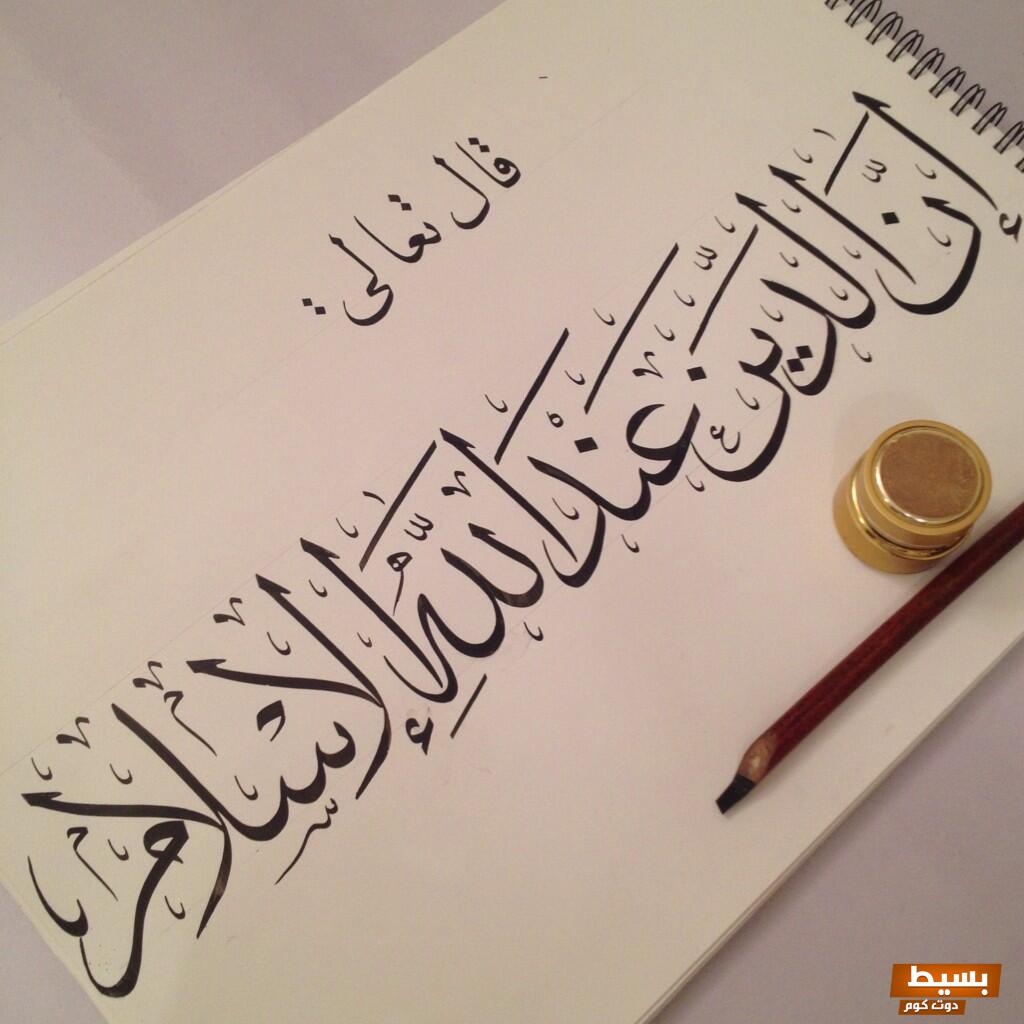 قال تعالى:
إنَّ الدين عند اللَّه الإسلام
بسيط
دوت كوم